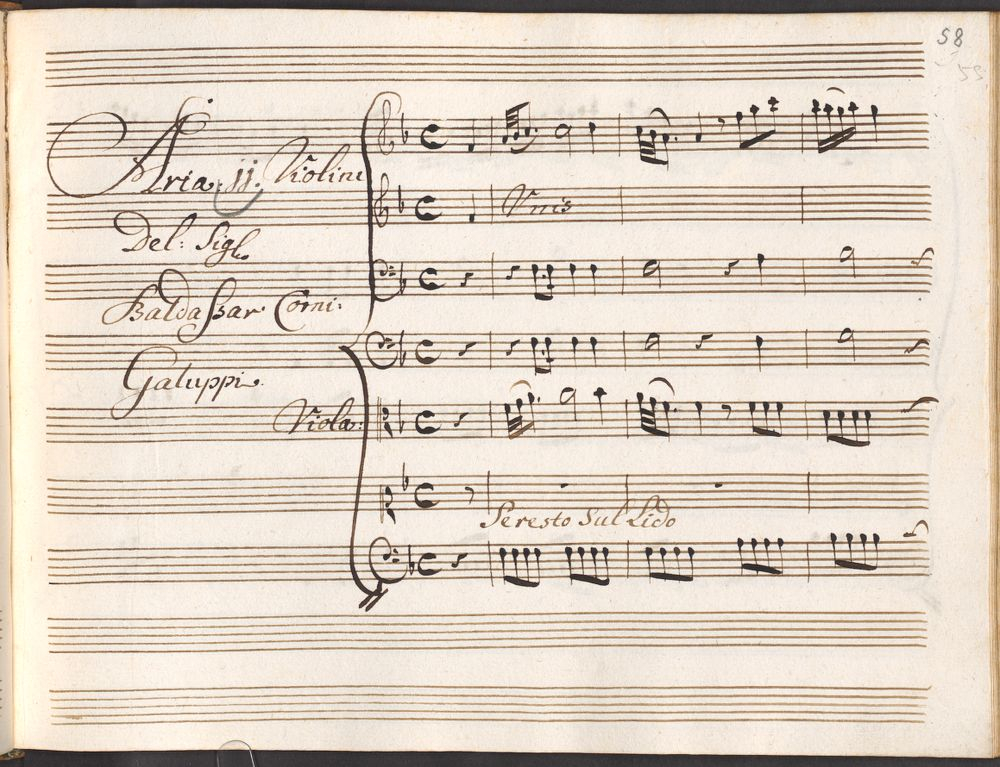 58
55
Aria. jj. Violini
Unis
Del: Sigl:
Baldassar. Corni:
Galuppi.
Viola:
Se resto sul Lido